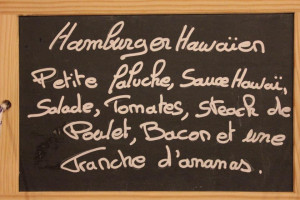 Hamburger Hawaïen
Petite Paluche, Sauce Hawaï,
Salade, Tomates, steack de
Poulet, Bacon et une
Tranche d'ananas.